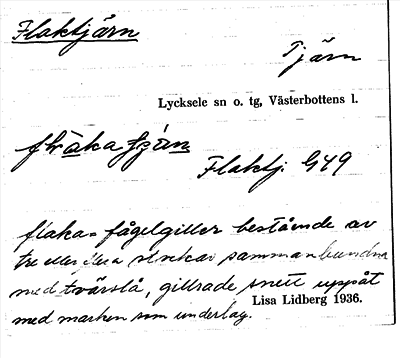 Flaktjärn
Tjärn
Lycksele sn o. tg, Västerbottens l.
Flaktj. G49
flaka = fågelgiller bestående av
tre eller flera stockar sammanbundna
med tvärslå, gillrade snett uppåt
Lisa Lidberg 1936.
med marken som underlag.